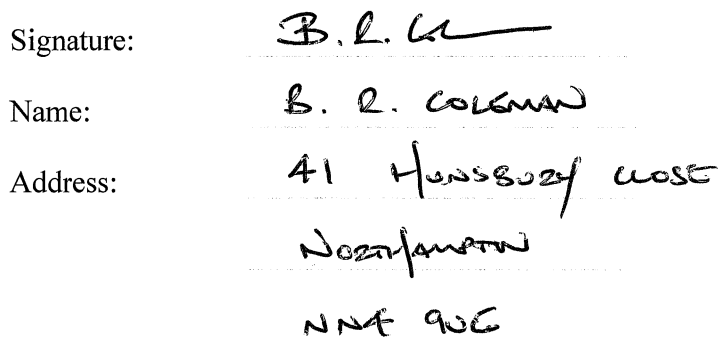 Signature: B. R. C
Name: B. R. COLEMAN
Address: 41 HUNSBURY CLOSE
NORTHAMPTON
NN4 9UE